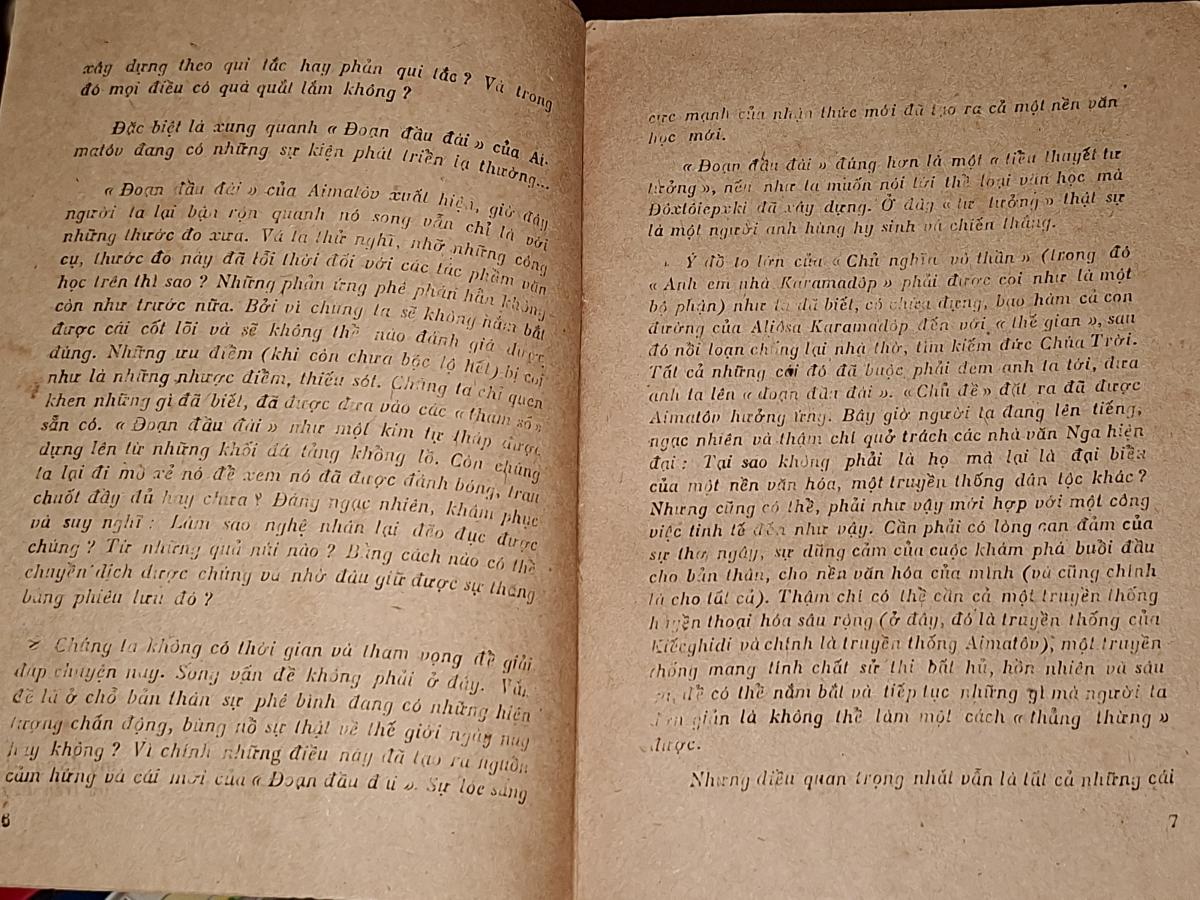 xây dựng theo qui tắc hay phản qui tắc ? Và trong
đó mọi điều có quá quắt lắm không ?
Đặc biệt là xung quanh « Đoạn đầu đài » của Ai-
matôv đang có những sự kiện phát triển lạ thường...
« Đoạn đầu đài » của Aimatôv xuất hiện, giờ đây
người ta lại bận rộn quanh nó song vẫn chỉ là với
những thước đo xưa. Và ta thử nghĩ, nhỡ những công
cụ, thước đo này đã lỗi thời đối với các tác phẩm văn
học trên thì sao ? Những phản ứng phê phán hẳn không
còn như trước nữa. Bởi vì chúng ta sẽ không nắm bắt
được cái cốt lõi và sẽ không thể nào đánh giá được
đúng. Những ưu điểm (khi còn chưa bộc lộ hết) bị coi
như là những nhược điểm, thiếu sót. Chúng ta chỉ quen
khen những gì đã biết, đã được đưa vào các « tham số »
sẵn có. « Đoạn đầu đài » như một kim tự tháp được
dựng lên từ những khối đá tảng khồng lồ. Còn chúng
ta lại đi mổ xẻ nó để xem nó đã được đánh bóng, trau
chuốt đầy đủ hay chưa ? Đáng ngạc nhiên, khâm phục
và suy nghĩ : Làm sao nghệ nhân lại đẽo đục được
chúng ? Từ những quả núi nào ? Bằng cách nào có thể
chuyển dịch được chúng và nhờ đâu giữ được sự thăng
bằng phiêu lưu đó ?
Chúng ta không có thời gian và tham vọng để giải
đáp chuyện này. Song vấn đề không phải ở đây. Vấn
đề là ở chỗ bản thân sự phê bình đang có những hiện
tượng chấn động, bùng nổ sự thật về thế giới ngày nay
hay không ? Vì chính những điều này đã tạo ra nguồn
cảm hứng và cái mới của « Đoạn đầu đài ». Sự lóe sáng
6
cực mạnh của nhận thức mới đã tạo ra cả một nền văn
học mới.
« Đoạn đầu đài » đúng hơn là một « tiểu thuyết tư
tưởng », nếu như ta muốn nói tới thể loại văn học mà
Đôxtôiepxki đã xây dựng. Ở đây « tư tưởng » thật sự
là một người anh hùng hy sinh và chiến thắng.
Ý đồ to lớn của « Chủ nghĩa vô thần » (trong đó
« Anh em nhà Karamadôp » phải được coi như là một
bộ phận) như ta đã biết, có chứa đựng, bao hàm cả con
đường của Aliôsa Karamadôp đến với « thế gian », sau
đó nổi loạn chống lại nhà thờ, tìm kiếm đức Chúa Trời.
Tất cả những cái đó đã buộc phải đem anh ta tới, đưa
anh ta lên « đoạn đầu đài ». « Chủ đề » đặt ra đã được
Aimatôv hưởng ứng. Bây giờ người ta đang lên tiếng,
ngạc nhiên và thậm chí quở trách các nhà văn Nga hiện
đại : Tại sao không phải là họ mà lại là đại biểu
của một nền văn hóa, một truyền thống dân tộc khác ?
Nhưng cũng có thể, phải như vậy mới hợp với một công
việc tinh tế đến như vậy. Cần phải có lòng can đảm của
sự thơ ngây, sự dũng cảm của cuộc khám phá buổi đầu
cho bản thân, cho nền văn hóa của mình (và cũng chính
là cho tất cả). Thậm chí có thể cần cả một truyền thống
huyền thoại hóa sâu rộng (ở đây, đó là truyền thống của
Kiếcghidi và chính là truyền thống Aimatôv), một truyền
thống mang tính chất sử thi bất hủ, hồn nhiên và sâu
để có thể nắm bắt và tiếp tục những gì mà người ta
đơn giản là không thể làm một cách « thẳng thừng »
được.
Nhưng điều quan trọng nhất vẫn là tất cả những cái
7